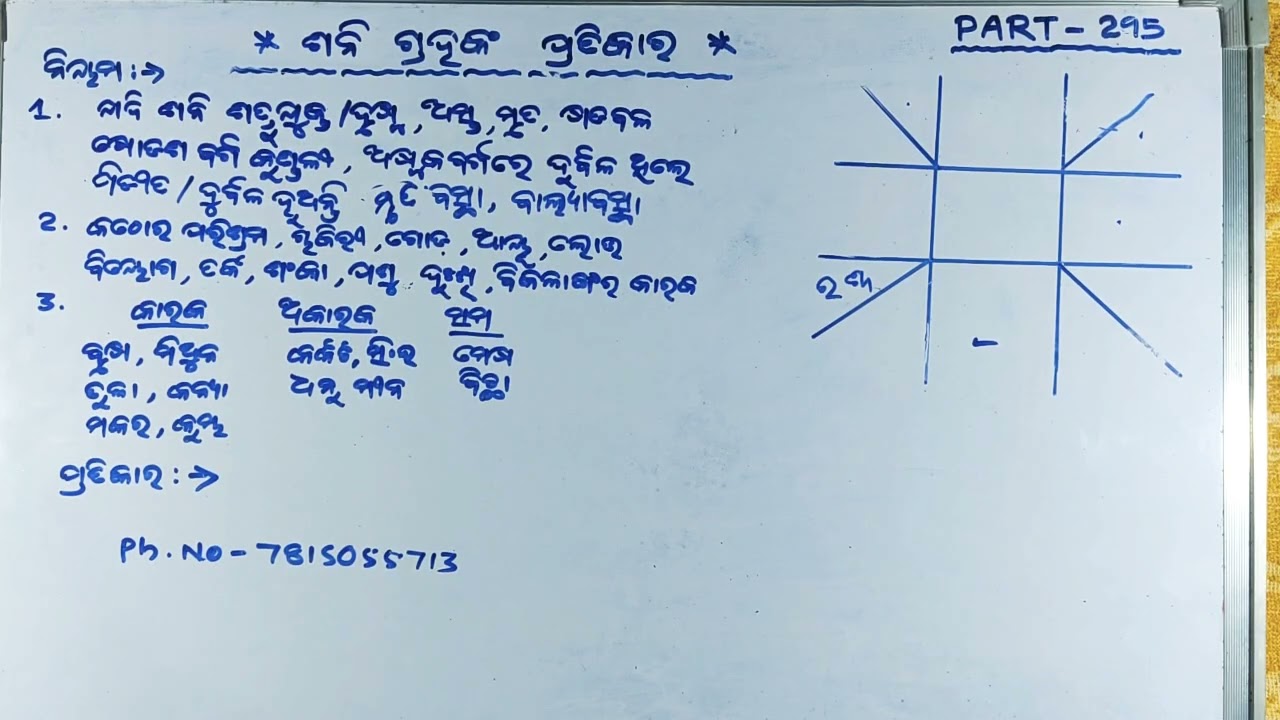 * ଶନି ଗ୍ରହଙ୍କ ପ୍ରତିକାର *
PART - 295
ନିୟମ :→
1. ଯଦି ଶନି ଶତ୍ରୁଯୁକ୍ତ / ଦୃଷ୍ଟ, ଅସ୍ତ, ମୃତ, ଷଡବଳ
ଷୋଡଶ ବର୍ଗ କୁଣ୍ଡଳୀ, ଅଷ୍ଟକବର୍ଗରେ ଦୁର୍ବଳ ଥିଲେ
ପିଡୀତ / ଦୁର୍ବଳ ହୁଅନ୍ତି ମୃତାବସ୍ଥା, ବାଲ୍ୟାବସ୍ଥା
2. କଠୋର ପରିଶ୍ରମ, ଗୋଡ଼, ଆଳୁ, ଲୋହ
ବିୟୋଗ, ତର୍କ, ଶଂକା, ପଶୁ, ଦୁଃଖ, ବିକଳାଙ୍ଗର କାରକ
3. କାରକ ଅକାରକ ସମ
ବୃଷ, ମିଥୁନ କର୍କଟ, ସିଂହ ମେଷ
ତୁଳା, କନ୍ୟା ଧନୁ ମୀନ ବିଛା
ମକର, କୁମ୍ଭ
ପ୍ରତିକାର :→
Ph. No - 7815055713